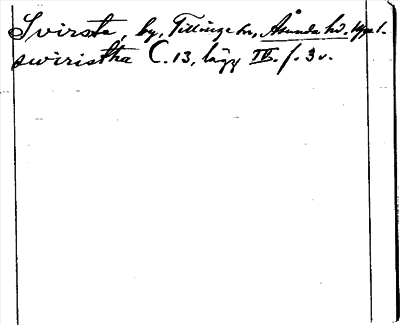 Svirsta, by, Tillinge sn, Åsunda hd. Uppl.
swiristha C. 13, lägg IV. f. 3 v.